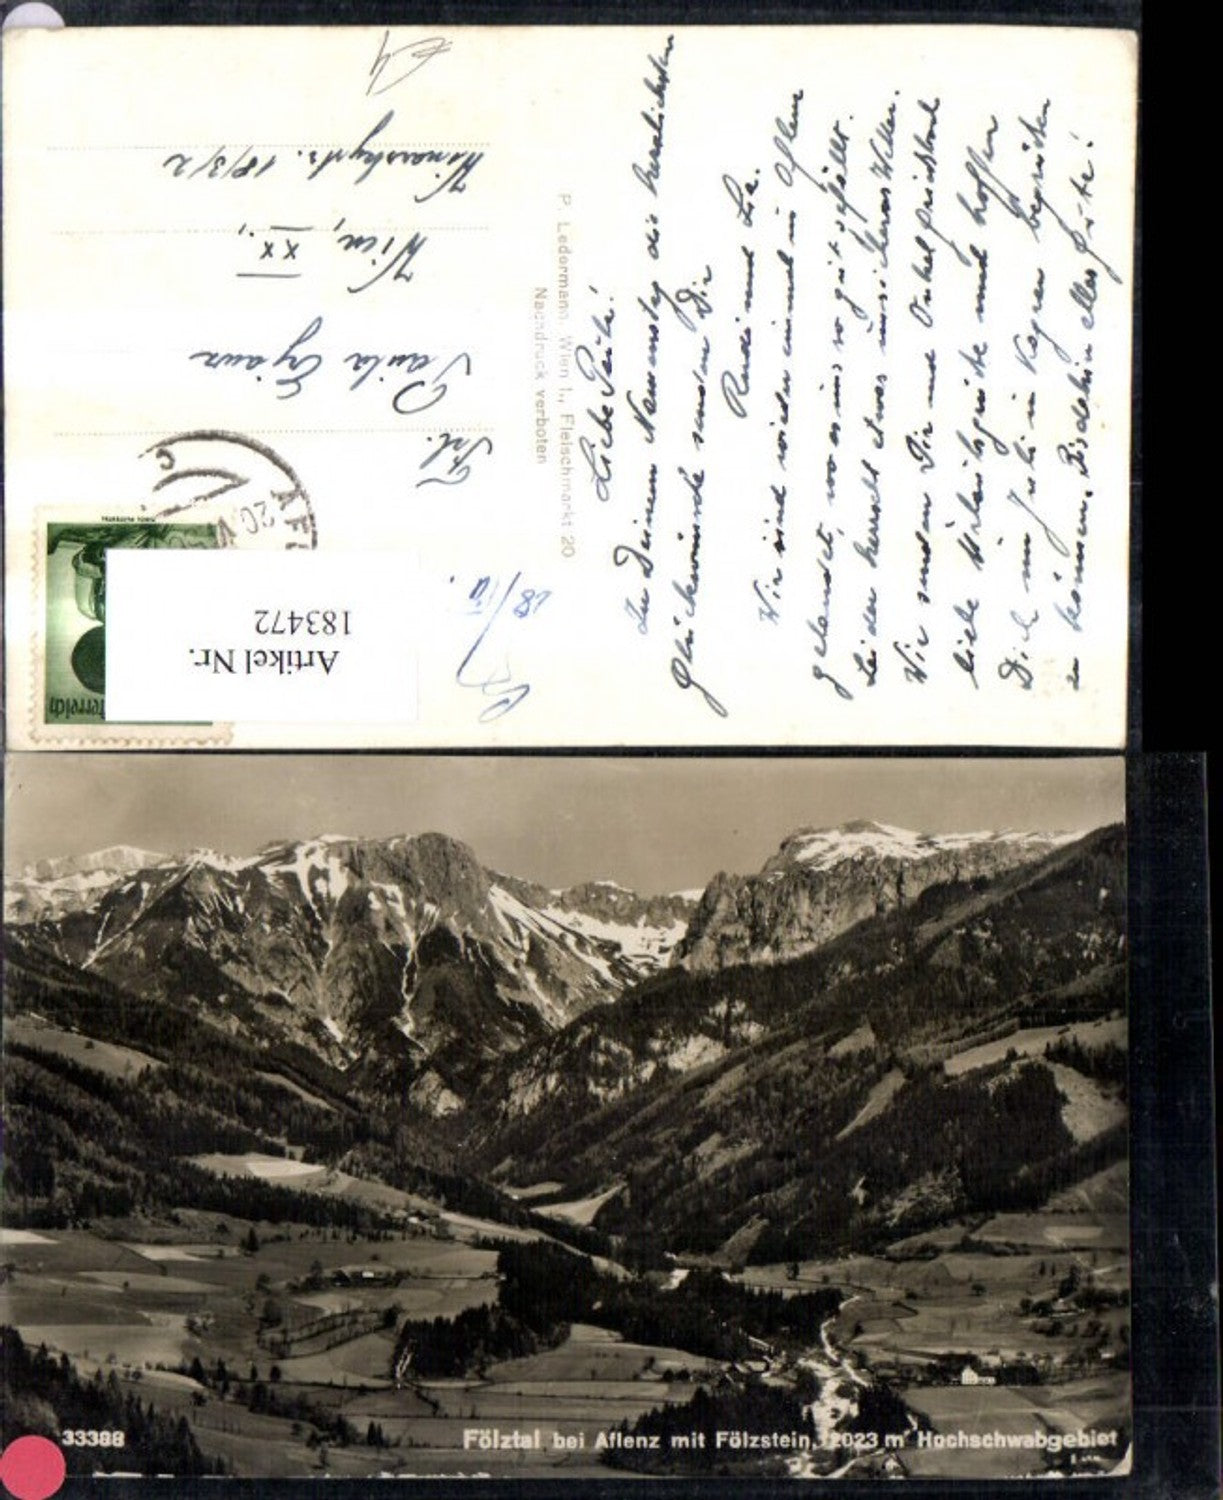 Liebe Poldi!
Zu Deinem Namenstag die herzlichsten
Glückwünsche senden Dir
Rudi und Lia.
Wir sind wieder einmal in Aflenz
gelandet, wo es uns so gut gefällt.
Leider herrscht etwas unsicheres Wetter.
Wir senden Dir und Onkel
liebe Urlaubsgrüße und hoffen
Dich im Juli in Kagran begrüßen
zu können. Bisdahin alles Gute!
P. Ledermann, Wien I., Fleischmarkt 20
Nachdruck verboten
Frl.
Paula
Wien, XX.,
18/3/2
28/IV.
AF
20.V
Österreich
Artikel Nr.
183472
33388
Fölztal bei Aflenz mit Fölzstein, 2023 m Hochschwabgebiet